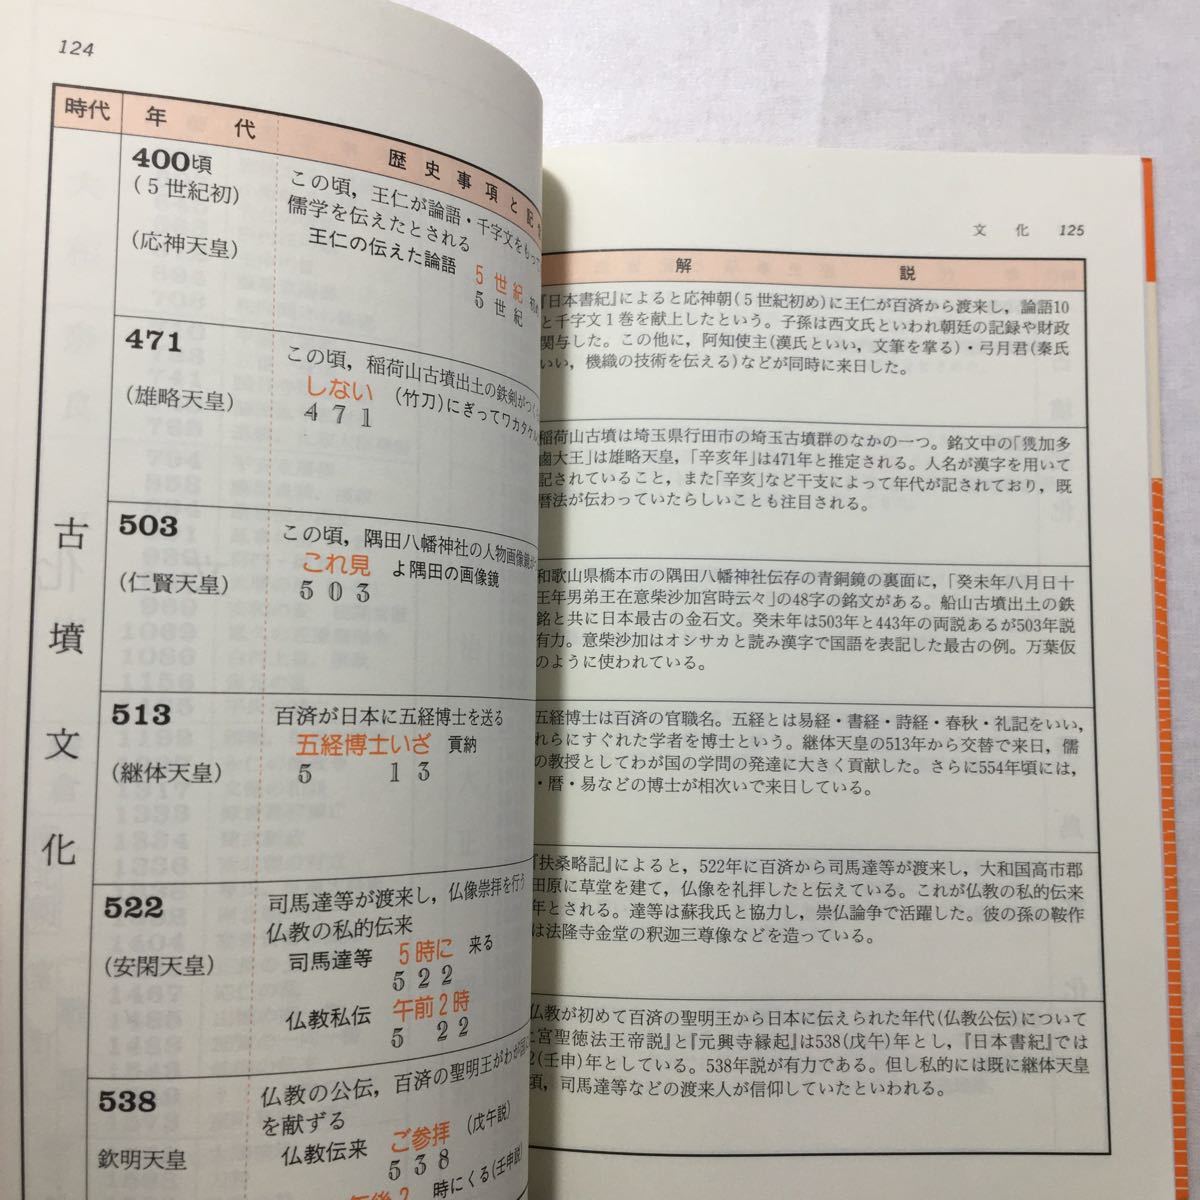 124
時代
年代
歴史事項と記
400頃
(5世紀初)
(応神天皇)
この頃，王仁が論語・千字文をもって
儒学を伝えたとされる
王仁の伝えた論語 5世紀 初め
5世紀
471
(雄略天皇)
この頃，稲荷山古墳出土の鉄剣がつく
しない (竹刀)にぎってワカタケル
471
古墳文化
503
(仁賢天皇)
この頃，隅田八幡神社の人物画像鏡が
これ見よ隅田の画像鏡
503
513
(継体天皇)
百済が日本に五経博士を送る
五経博士いざ 貢納
5 13
522
(安閑天皇)
司馬達等が渡来し，仏像崇拝を行う
仏教の私的伝来
司馬達等 5時に 来る
522
仏教私伝 午前2時
5 22
538
欽明天皇
仏教の公伝，百済の聖明王がわが国
を献ずる
仏教伝来 ご参拝 (戊午説)
538
午後2時にくる(壬申説)
文化 125
解説
『日本書紀』によると応神朝(5世紀初め)に王仁が百済から渡来し，論語10
と千字文1巻を献上したという。子孫は西文氏といわれ朝廷の記録や財政
関与した。この他に，阿知使主(漢氏といい，文筆を掌る)・弓月君(秦氏
いい，機織の技術を伝える)などが同時に来日した。
稲荷山古墳は埼玉県行田市の埼玉古墳群のなかの一つ。銘文中の「獲加多
鹵大王」は雄略天皇，「辛亥年」は471年と推定される。人名が漢字を用いて
記されていること，また「辛亥」など干支によって年代が記されており，既
暦法が伝わっていたらしいことも注目される。
和歌山県橋本市の隅田八幡神社伝存の青銅鏡の裏面に，「癸未年八月日十
王年男弟王在意柴沙加宮時云々」の48字の銘文がある。船山古墳出土の鉄
銘と共に日本最古の金石文。癸未年は503年と443年の両説あるが503年説
有力。意柴沙加はオシサカと読み漢字で国語を表記した最古の例。万葉仮
のように使われている。
五経博士は百済の官職名。五経とは易経・書経・詩経・春秋・礼記をいい，
れらにすぐれた学者を博士という。継体天皇の513年から交替で来日，儒
の教授としてわが国の学問の発達に大きく貢献した。さらに554年頃には，
・暦・易などの博士が相次いで来日している。
『扶桑略記』によると，522年に百済から司馬達等が渡来し，大和国高市郡
田原に草堂を建て，仏像を礼拝したと伝えている。これが仏教の私的伝来
年とされる。達等は蘇我氏と協力し，崇仏論争で活躍した。彼の孫の鞍作
は法隆寺金堂の釈迦三尊像などを造っている。
仏教が初めて百済の聖明王から日本に伝えられた年代(仏教公伝)について
上宮聖徳法王帝説』と『元興寺縁起』は538(戊午)年とし，『日本書紀』では
2(壬申)年としている。538年説が有力である。但し私的には既に継体天皇
頃，司馬達等などの渡来人が信仰していたといわれる。